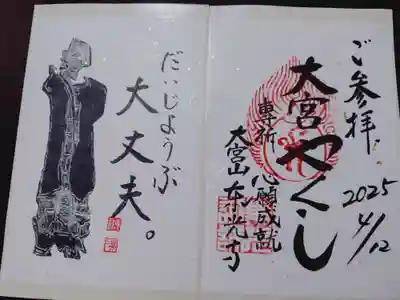 ご参拝
2025
4/12
大宮やくし
専祈 心願成就
大宮山 东光寺
だいじょうぶ
大丈夫。